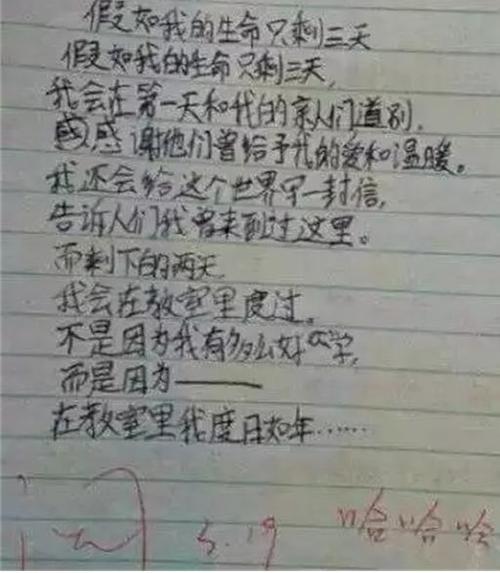 假如我的生命只剩三天
假如我的生命只剩三天,
我会在第一天和我的亲人们道别,
感感谢他们曾给予我的爱和温暖。
我还会给这个世界写一封信,
告诉人们我曾来到过这里。
而剩下的两天,
我会在教室里度过。
不是因为我有多么好学,
而是因为——
在教室里我度日如年……
阅 5.19 哈哈哈